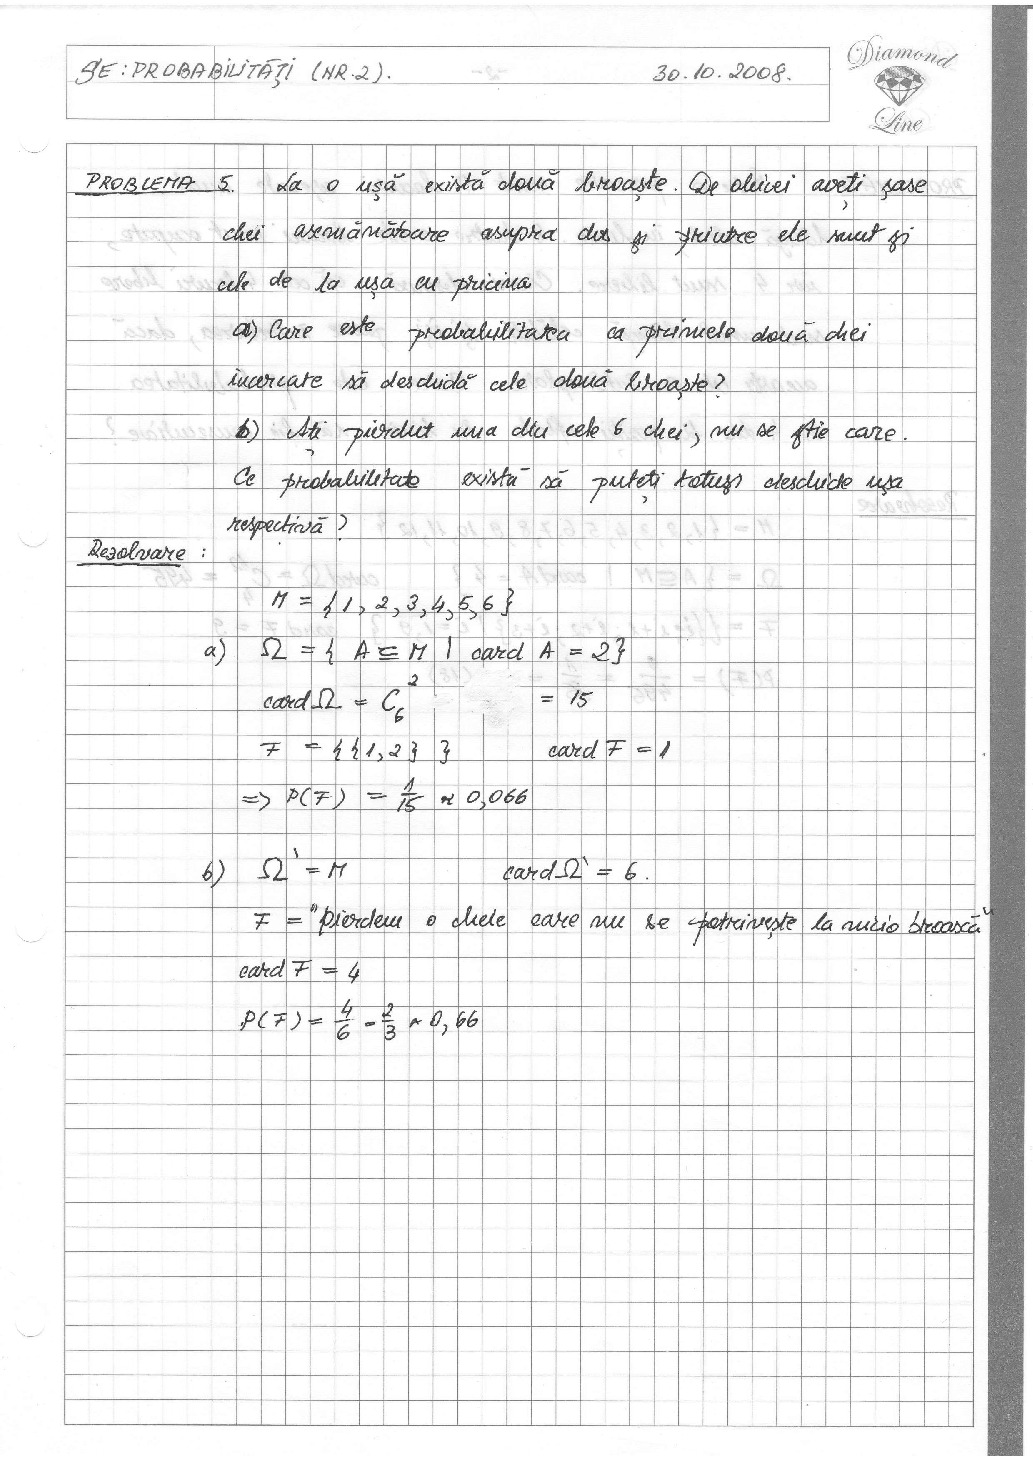 SE: PROBABILITĂȚI (NR.2). 30.10.2008.
Diamond
Line
PROBLEMA 5. La o ușă există două broaște. De obicei aveți șase
chei asemănătoare asupra dvs și printre ele sunt și
cele de la ușa cu pricina
a) Care este probabilitatea ca primele două chei
încercate să deschidă cele două broaște?
b) Ați pierdut una din cele 6 chei, nu se știe care.
Ce probabilitate există să puteți totuși deschide ușa
respectivă?
Rezolvare:
M = {1, 2, 3, 4, 5, 6}
a) Ω = { A ⊆ M | card A = 2}
card Ω = C₆² = 15
F = {{1,2} } card F = 1
=> P(F) = 1/15 ≈ 0,066
b) Ω` = M card Ω` = 6.
F = "pierdem o cheie care nu se potrivește la nicio broască"
card F = 4
P(F) = 4/6 = 2/3 ≈ 0,66